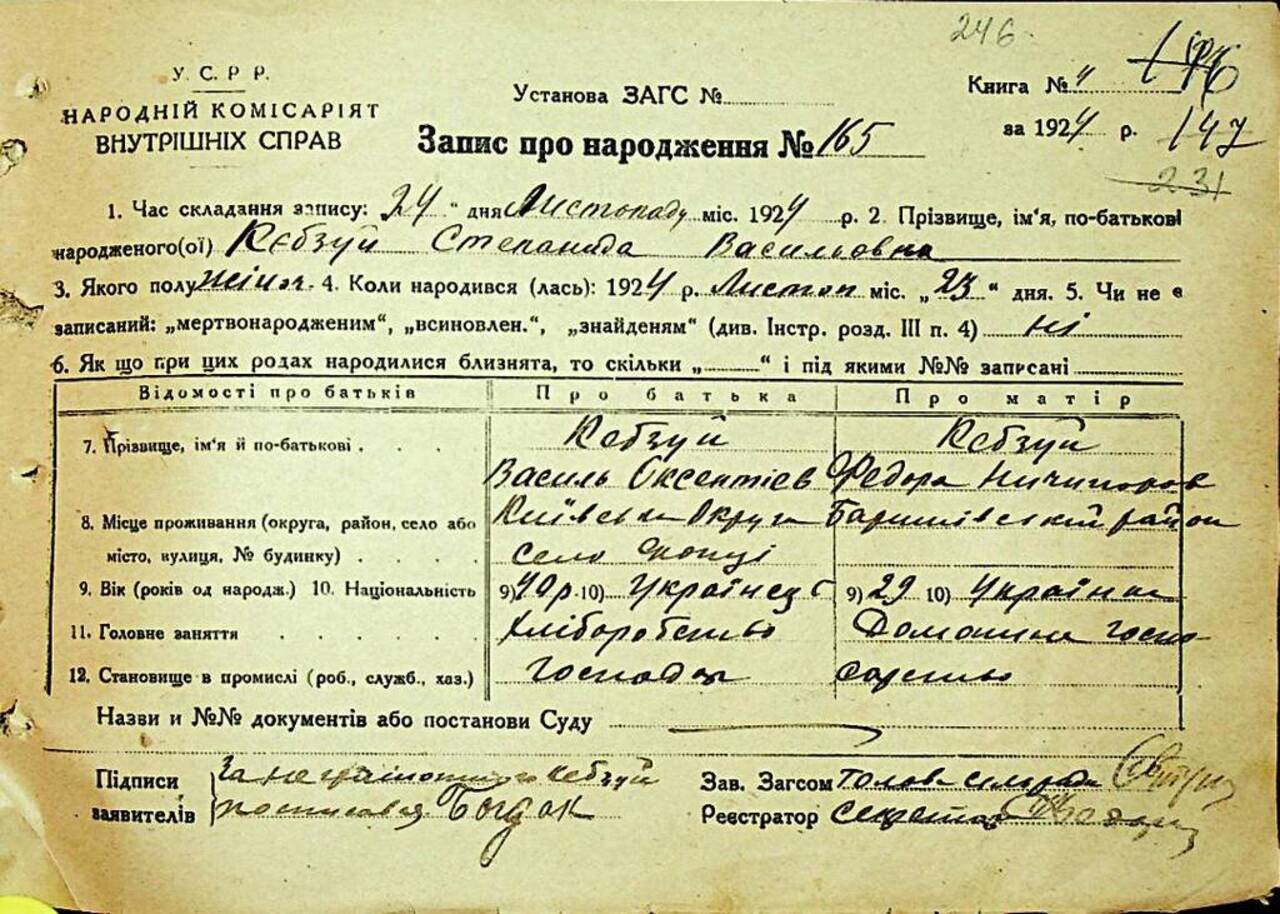 246
У. С. Р. Р.
НАРОДНІЙ КОМІСАРІЯТ
ВНУТРІШНІХ СПРАВ
Установа ЗАГС №
Книга № 4 146
Запис про народження № 165
за 1924 р. 147
231
1. Час складання запису: 24 " дня Листопаду міс. 1924 р. 2. Прізвище, ім'я, по-батькові
народженого(ої) Кебзуй Степанида Васильовна
3. Якого полу жіноч. 4. Коли народився (лась): 1924 р. Листоп міс. „23" дня. 5. Чи не є
записаний: „мертвонародженим", „всиновлен.", „знайденям" (див. Інстр. розд. III п. 4) ні
6. Як що при цих родах народилися близнята, то скільки „ " і під якими №№ записані
Відомості про батьків Про батька Про матір
7. Прізвище, ім'я й по-батькові . . . Кебзуй Кебзуй
Василь Оксентієв Федора Ничипоров
8. Місце проживання (округа, район, село або Київська Округа Баришівський район
місто, вулиця, № будинку) . . . . село
9. Вік (років од народж.) 10. Національність 9) 40 р. 10) Українець 9) 29 10) Українка
11. Головне заняття . . . . . Хліборобство Домашнє госпо
12. Становище в промислі (роб., служб., хаз.) Господар дарство
Назви и №№ документів або постанови Суду
Підписи За неграмотного Кебзуй Зав. Загсом Голова сільради
заявителів росписався Богдак Реєстратор Секретар